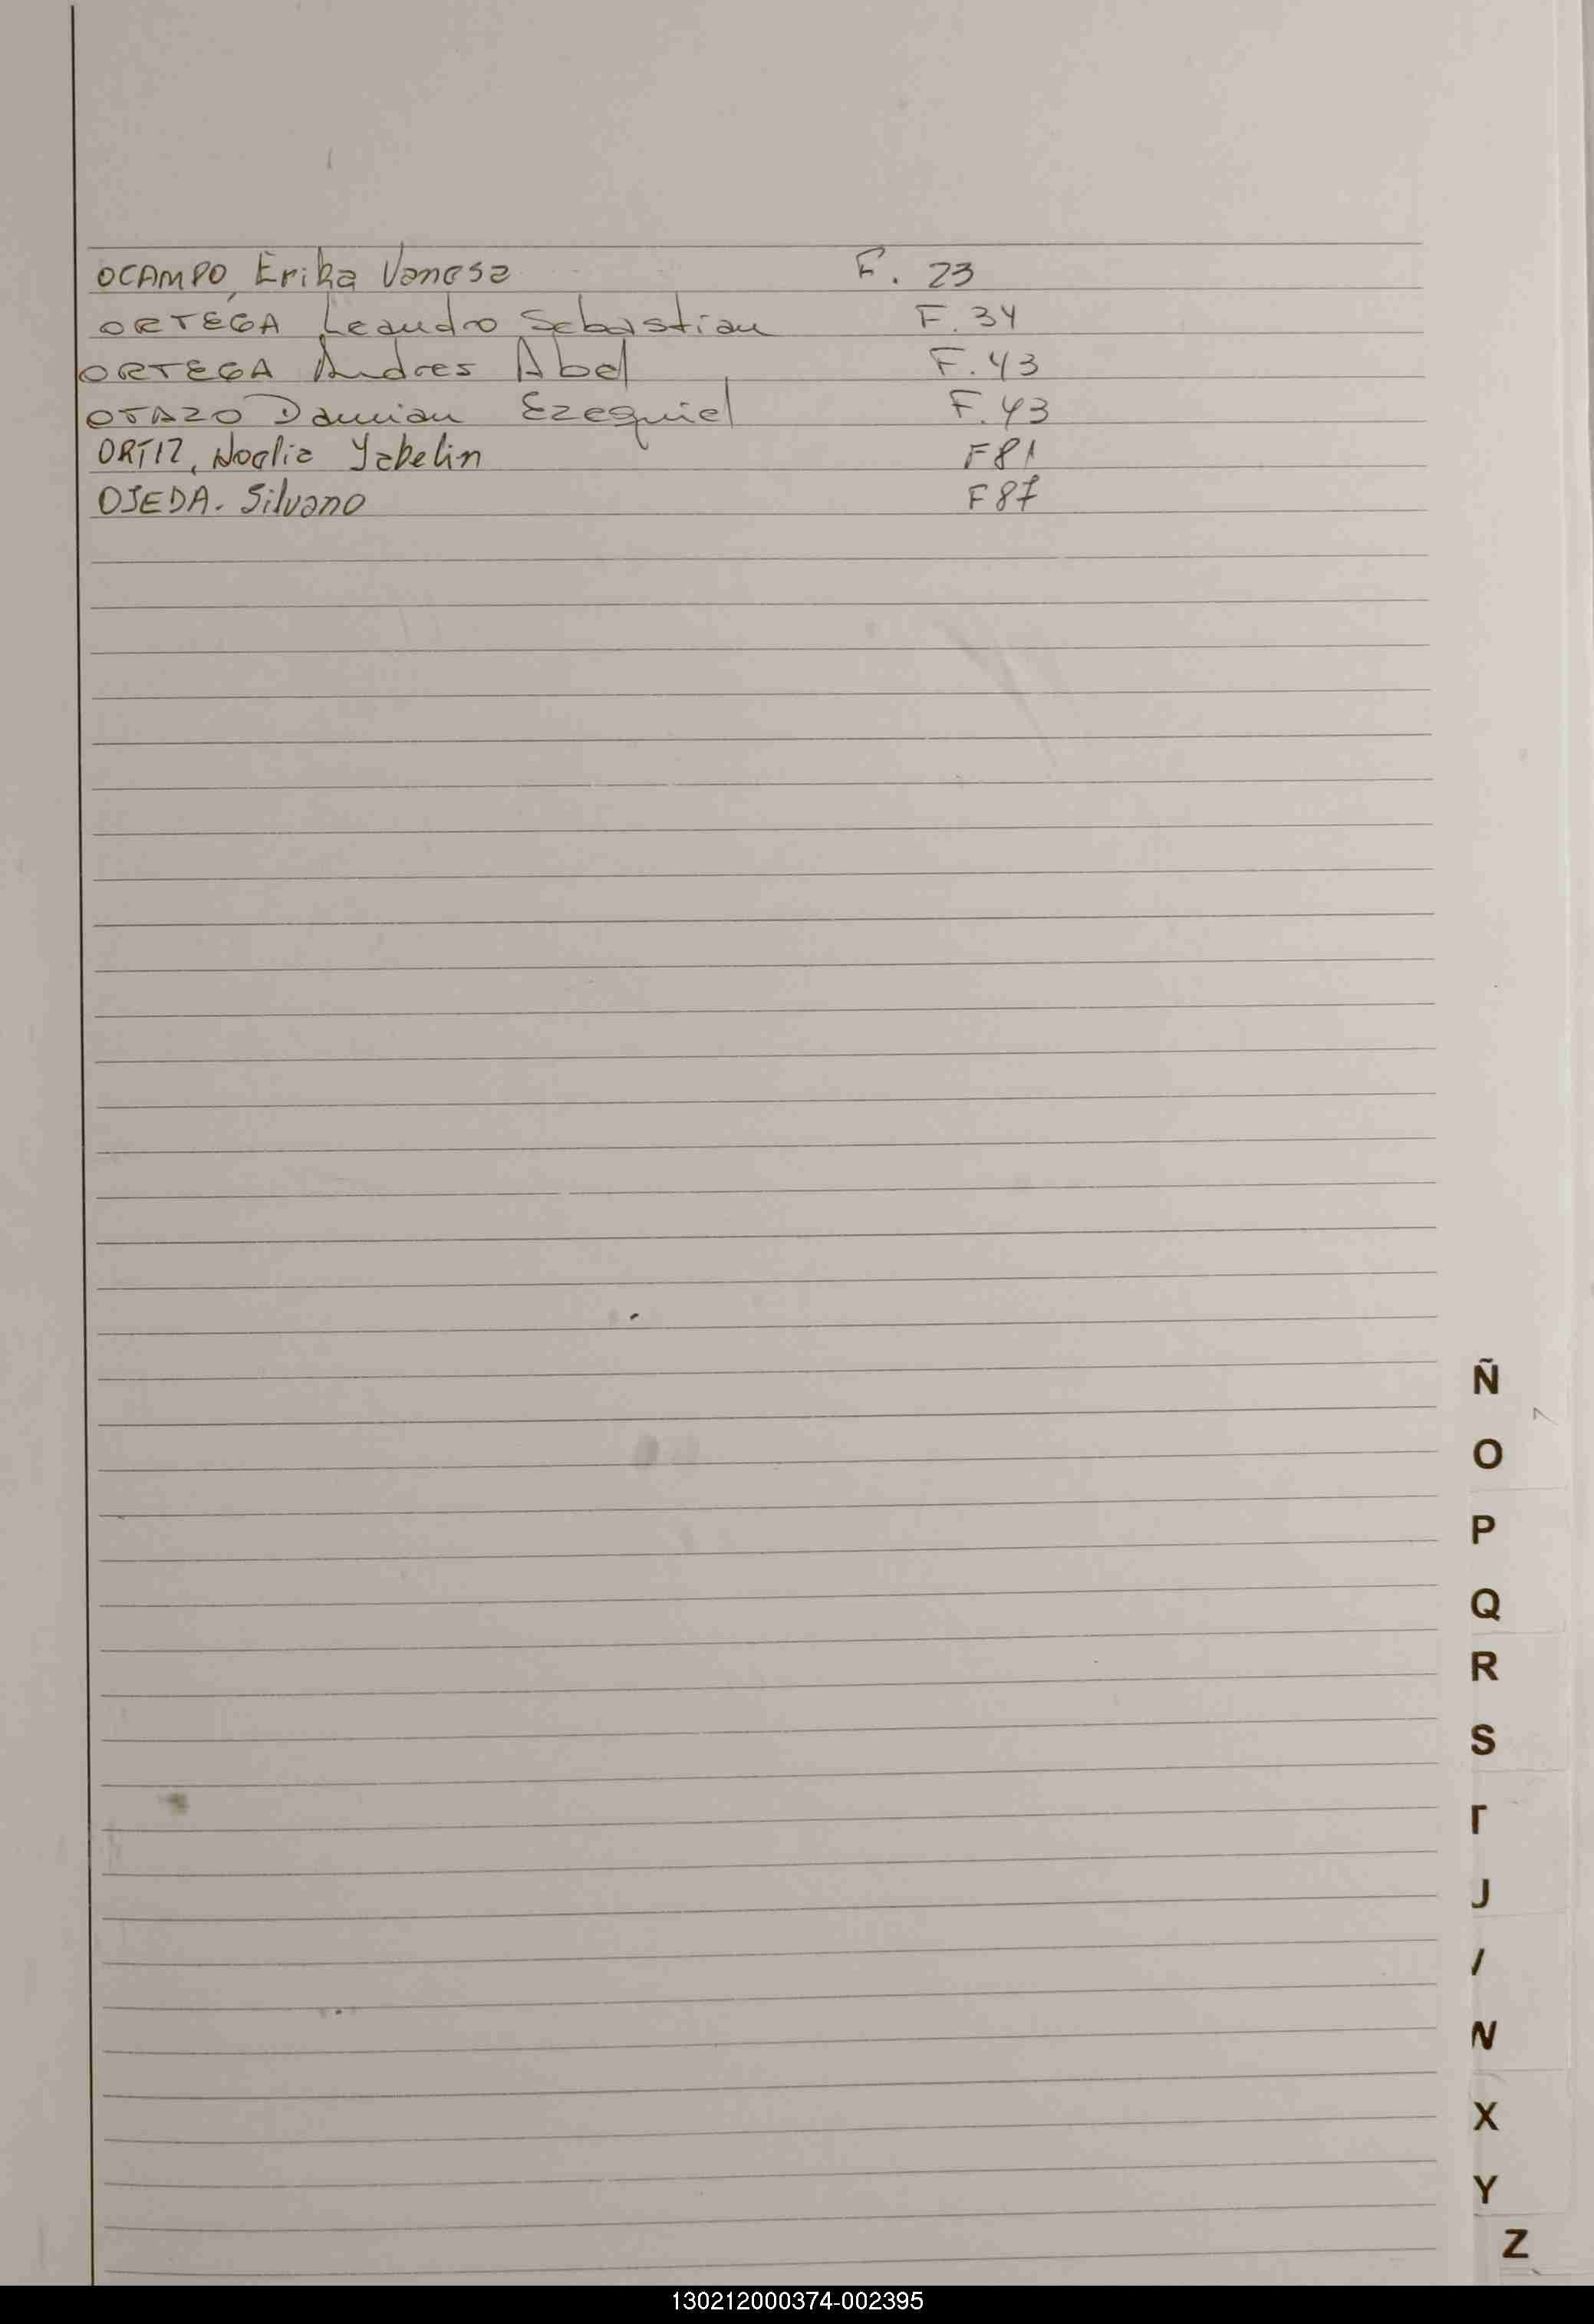 OCAMPO, Erika Vanesa F. 23
ORTEGA Leandro Sebastian F. 34
ORTEGA Andres Abel F. 43
OTAZO Damian Ezequiel F. 43
ORTIZ, Noelia Yabelin F81
OJEDA. Silvano F87
Ñ
O
P
Q
R
S
T
X
Y
Z
130212000374-002395